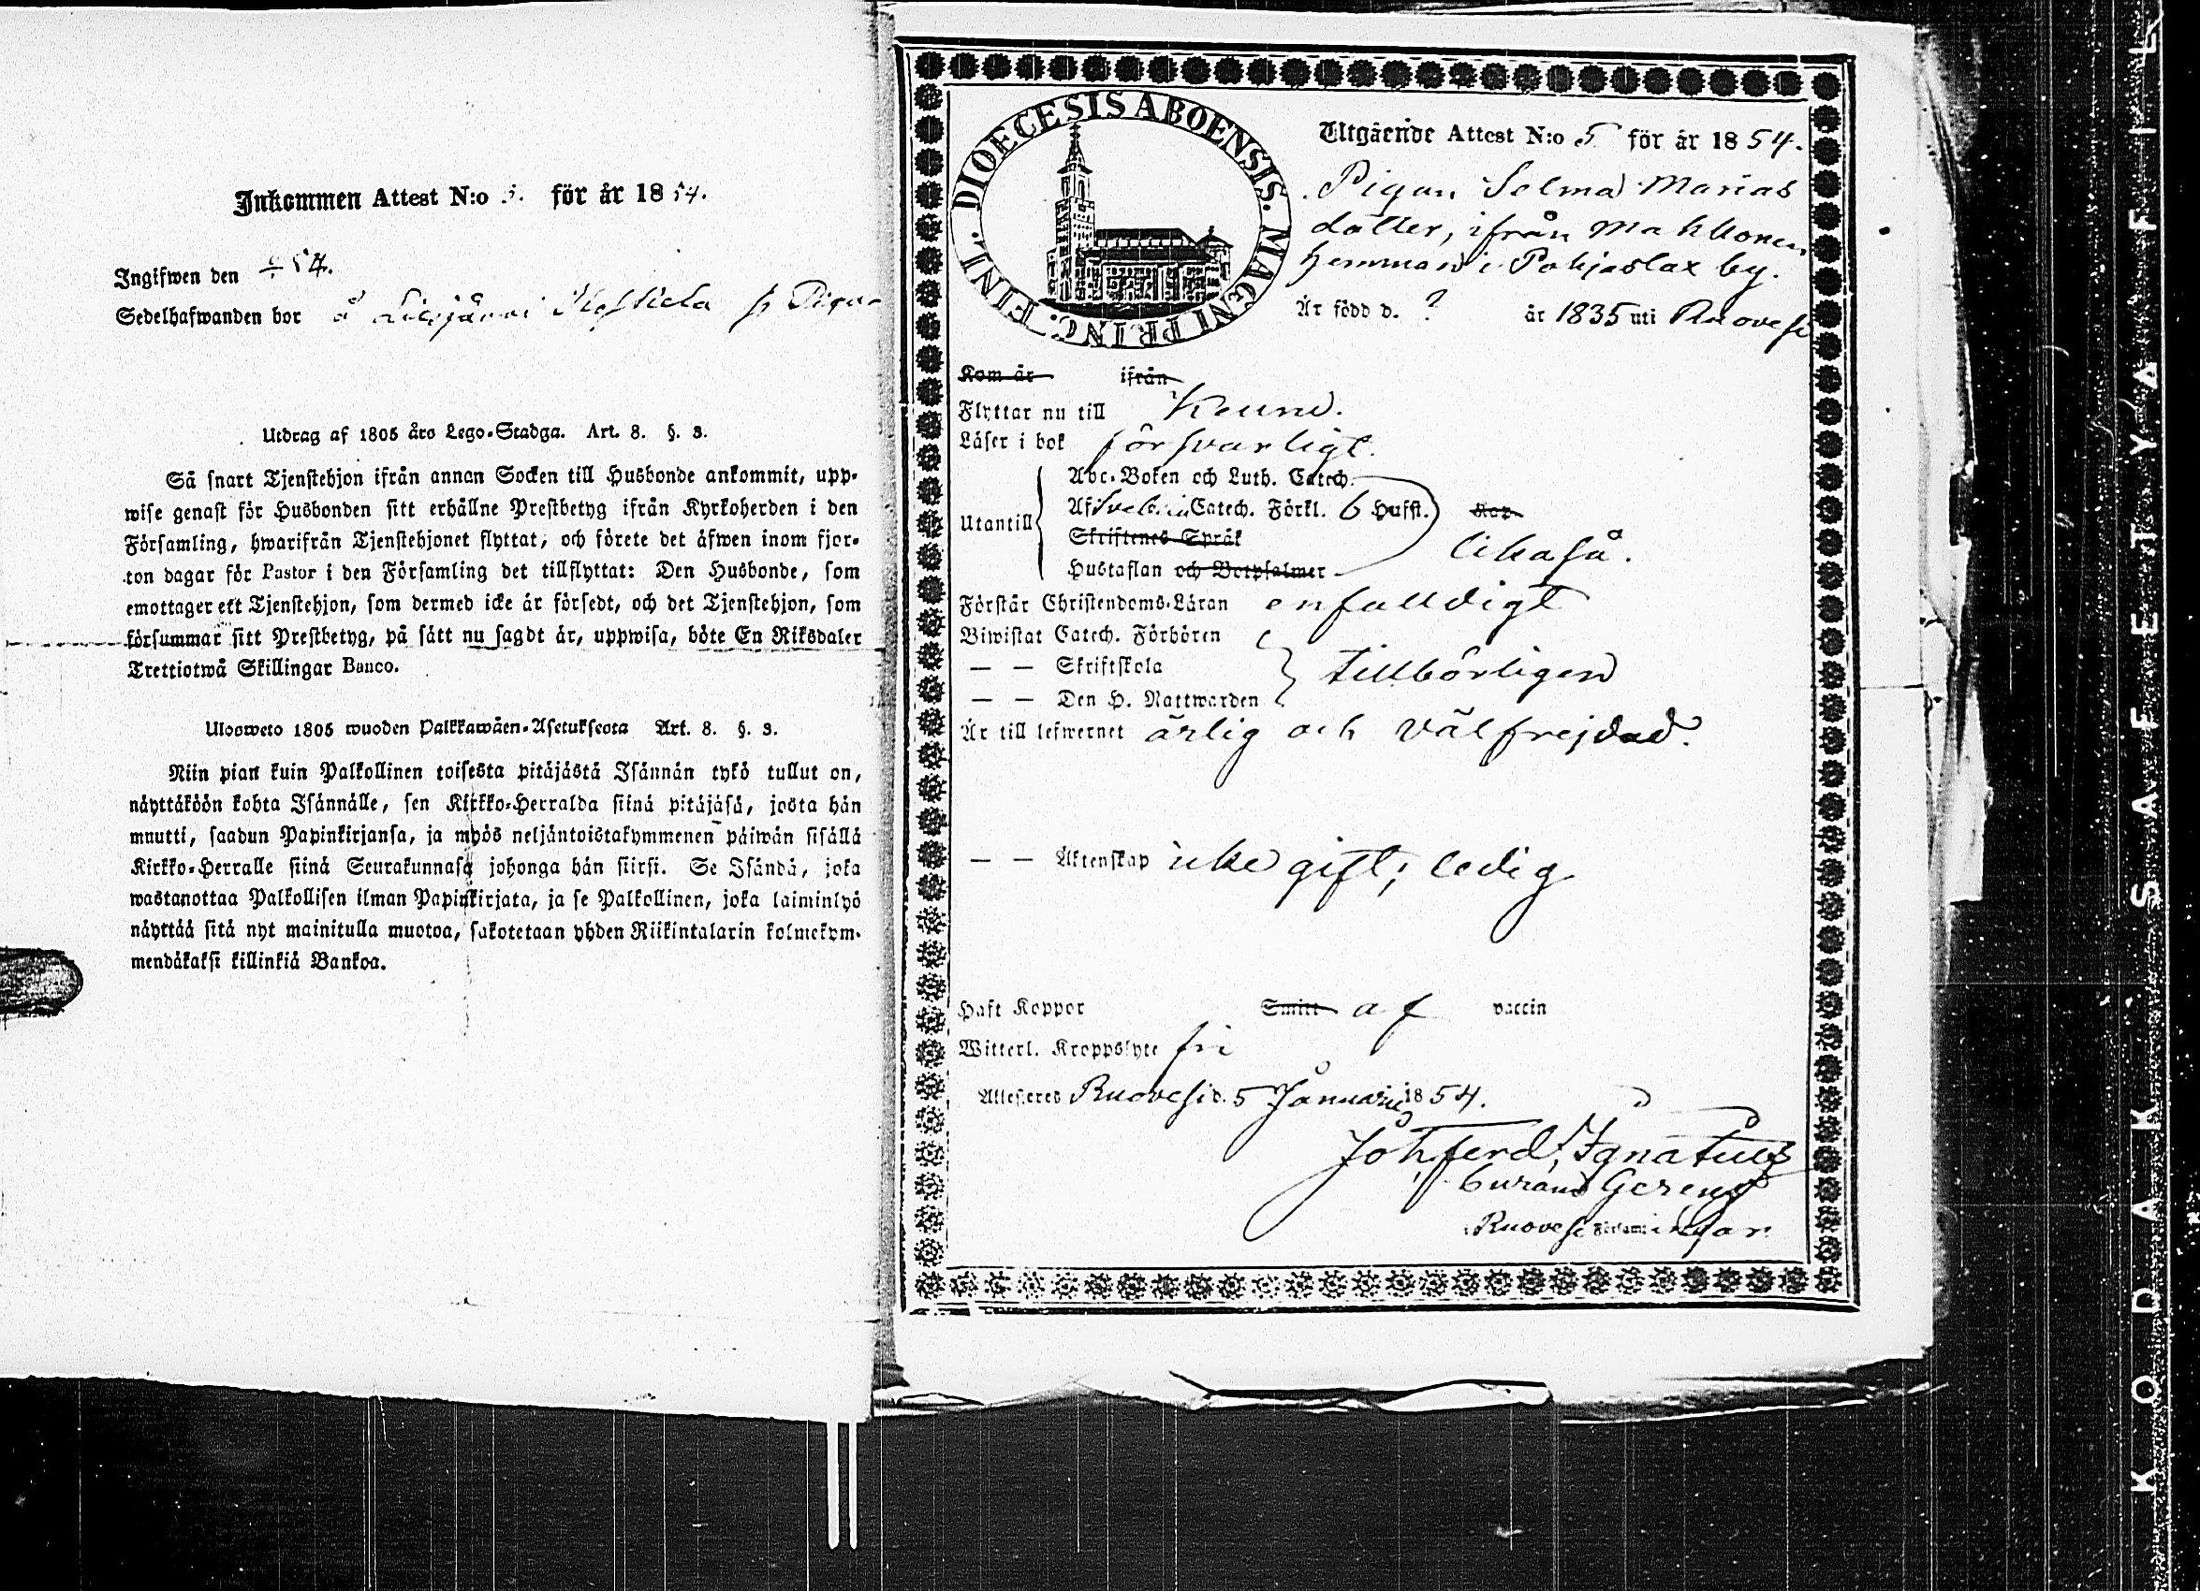 Inkommen Attest N:o 5. för år 1854.
Ingifwen den 54.
Sedelhafwanden bor å
Utdrag af 1805 års Lego-Stadga. Art. 8. §. 3.
Så snart Tjenstehjon ifrån annan Socken till Husbonde ankommit, upp-
wise genast för Husbonden sitt erhållne Prestbetyg ifrån Kyrkoherden i den
Församling, hwarifrån Tjenstehjonet flyttat, och förete det äfwen inom fjor-
ton dagar för Pastor i den Församling det tillflyttat: Den Husbonde, som
emottager ett Tjenstehjon, som dermed icke är försedt, och det Tjenstehjon, som
försummar sitt Prestbetyg, på sätt nu sagdt är, uppwisa, böte En Riksdaler
Trettiotwå Skillingar Banco.
Ulosweto 1805 wuoden Palkkawäen-Asetuksesta Art. 8. §. 3.
Niin pian kuin Palkollinen toisesta pitäjästä Isännän tykö tullut on,
näyttäköön kohta Isännälle, sen Kirkko-Herralda siinä pitäjäsä, josta hän
muutti, saadun Papinkirjansa, ja myös neljäntoistakymmenen päiwän sisällä
Kirkko-Herralle siinä Seurakunnasa johonga hän siirsi. Se Isändä, joka
wastanottaa Palkollisen ilman Papinkirjata, ja se Palkollinen, joka laiminlyö
näyttää sitä nyt mainitulla muotoa, sakotetaan yhden Riikintalarin kolmekym-
mendäkaksi killinkiä Bankoa.
DIOECESIS ABOENSIS. MAGNI PRINC. FINL.
Utgående Attest N:o 5 för år 1854.
Pigan Selma Marias
dotter, ifrån
hemman i Pohjaslax by.
Är född d. ? år 1835 uti Ruovesi
Kom år ifrån
Flyttar nu till Keuru.
Läser i bok försvarligt.
Abc-Boken och Luth. Catech.
Utantill
Af Svebilii Catech. Förkl. 6 Hufst. Kap.
Skriftenes Språk
likaså.
Hustaflan och Botpsalmer
Förstår Christendoms-Läran enfaldigt
Biwistat Catech. Förhören
— — Skriftskola tillbörligen
— — Den H. Nattwarden
Är till lefwernet ärlig och välfrejdad.
— — Äktenskap icke gift; ledig
Haft Koppor Smitt af vaccin
Witterl. Kroppslyte fri
Attesteras Ruovesi d. 5 Januarii 1854.
Joh. Ferd. Ignatius
Curam Gerens
i Ruovesi Församlingar
KODAK SAFETY FIL